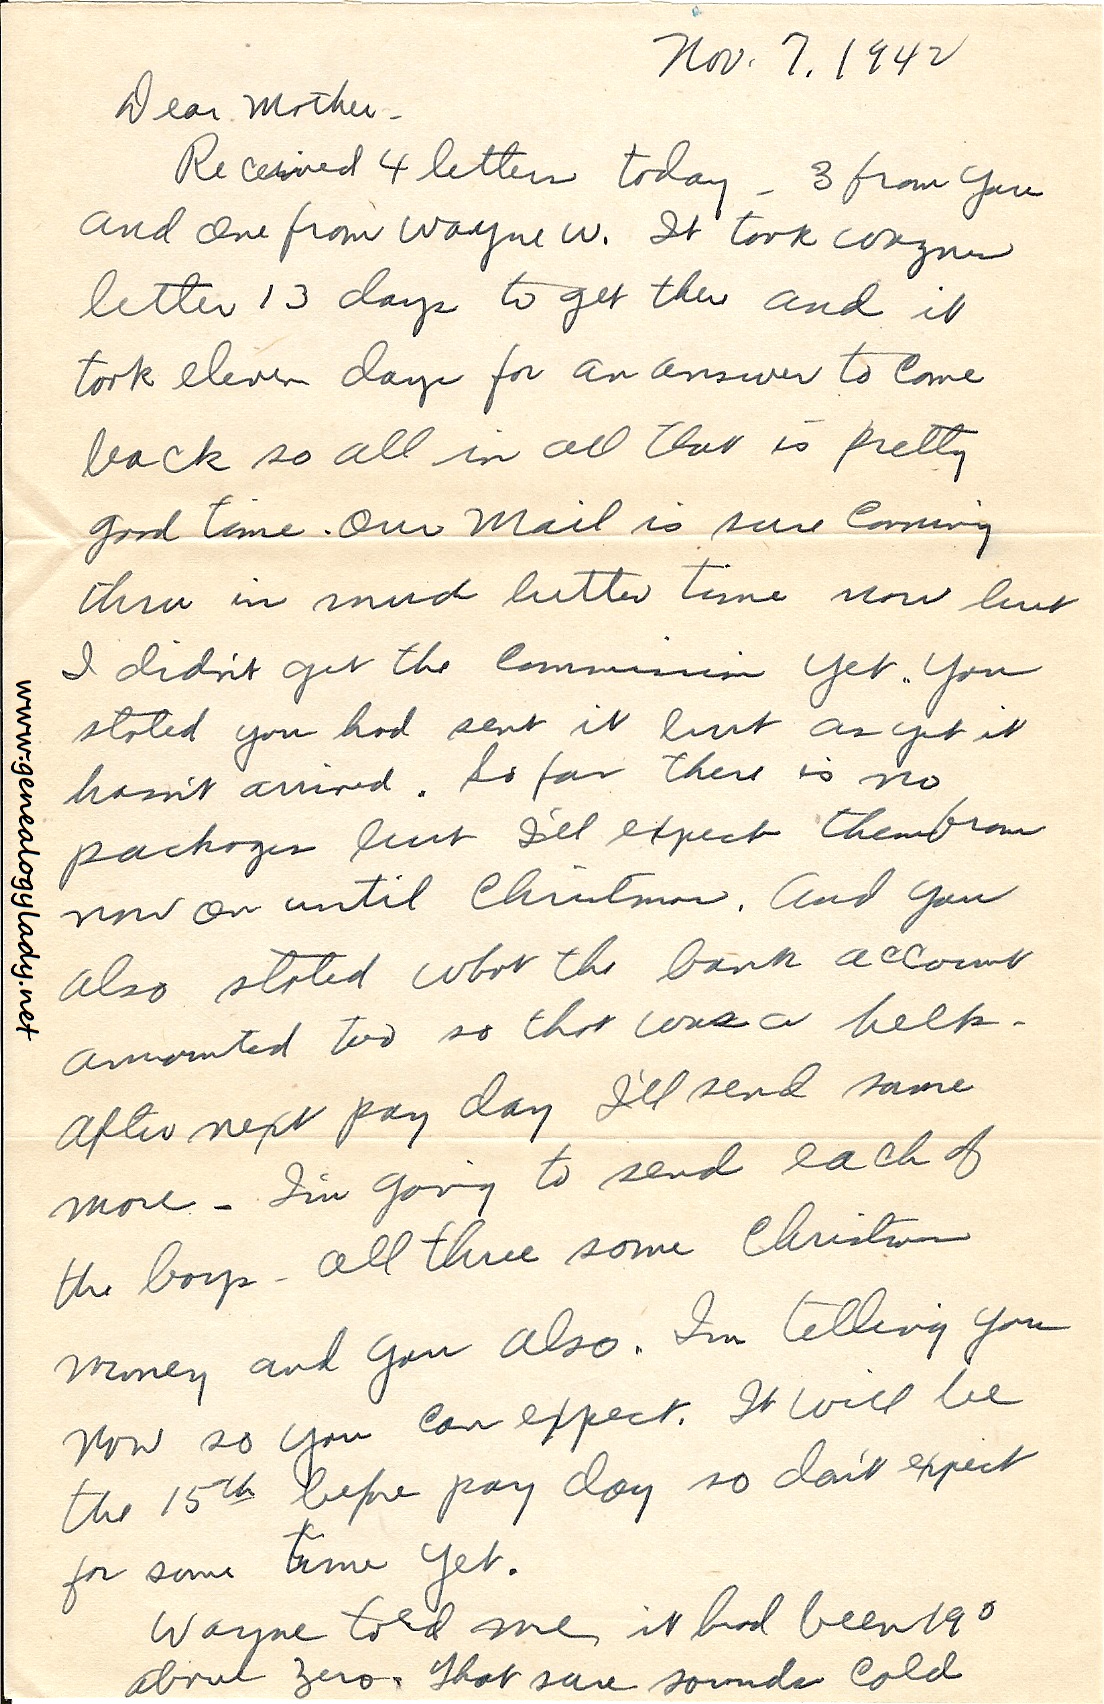 Nov. 7, 1942
Dear Mother -
Received 4 letters today - 3 from you
and one from Wayne W. It took Waynes
letter 13 days to get there and it
took eleven days for an answer to come
back so all in all that is pretty
good time. Our mail is sure coming
thru in much better time now but
I didn't get the commission yet. You
stated you had sent it but as yet it
hasn't arrived. So far there is no
packages but I'll expect them from
now on until Christmas. And you
also stated what the bank account
amounted too so that was a help -
After next pay day I'll send some
more - I'm going to send each of
the boys - all three some Christmas
money and you also. I'm telling you
now so you can expect. It will be
the 15th before pay day so don't expect
for some time yet.
Wayne told me it had been 19°
above zero. That sure sounds cold
www.genealogylady.net